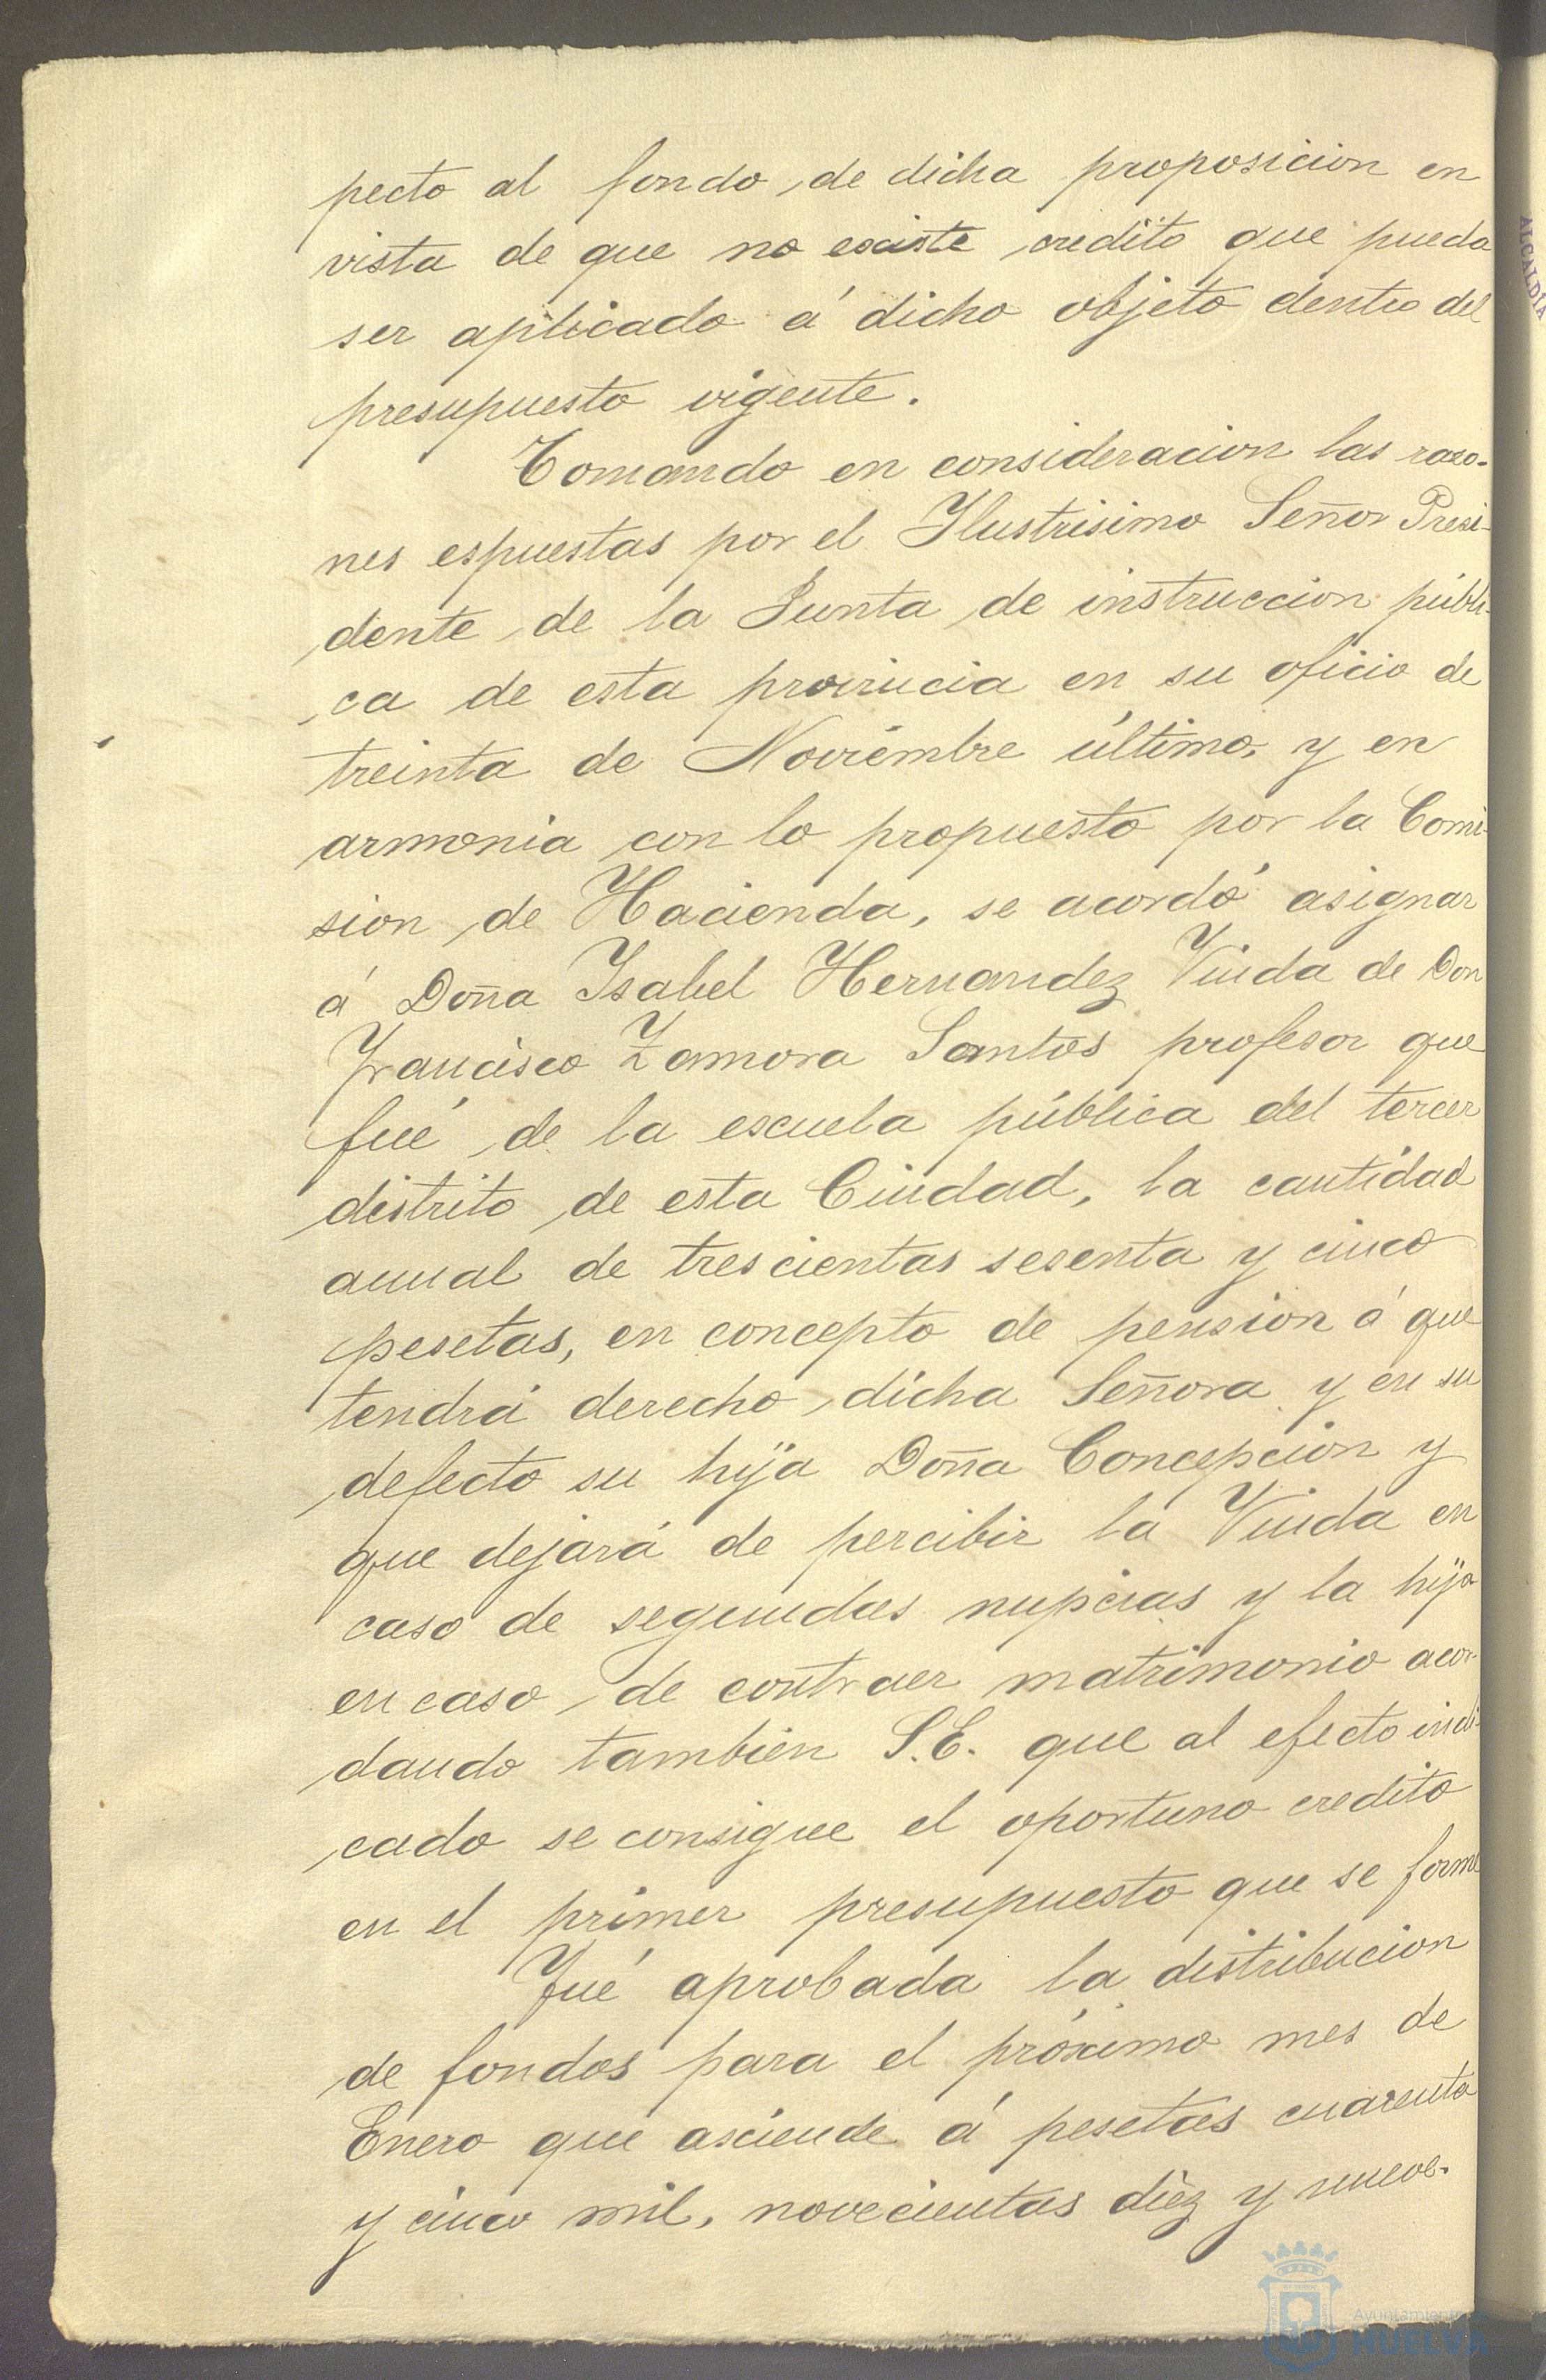 pecto al fondo de dicha proposicion en
vista de que no existe credito que pueda
ser aplicado á dicho objeto dentro del
presupuesto vigente.
Tomando en consideracion las razo-
nes espuestas por el Ylustrisimo Señor Presi-
dente de la Junta de instruccion públi-
ca de esta provincia en su oficio de
treinta de Noviembre último, y en
armonia con lo propuesto por la Comi-
sion de Hacienda, se acordó asignar
á Doña Ysabel Hernandez Viuda de Don
Francisco Zamora Santos profesor que
fué de la escuela pública del tercer
distrito de esta Ciudad, la cantidad
anual de trescientas sesenta y cinco
pesetas, en concepto de pension á que
tendrá derecho dicha Señora y en su
defecto su hija Doña Concepcion y
que dejará de percibir la Viuda en
caso de segundas nupcias y la hija
en caso de contraer matrimonio acor-
dando tambien S.E. que al efecto indi-
cado se consigue el oportuno credito
en el primer presupuesto que se forme
Fué aprobada la distribucion
de fondos para el próximo mes de
Enero que asciende á pesetas cuarenta
y cinco mil, novecientas diez y nueve.
ALCALDIA
Ayuntamiento de
HUELVA